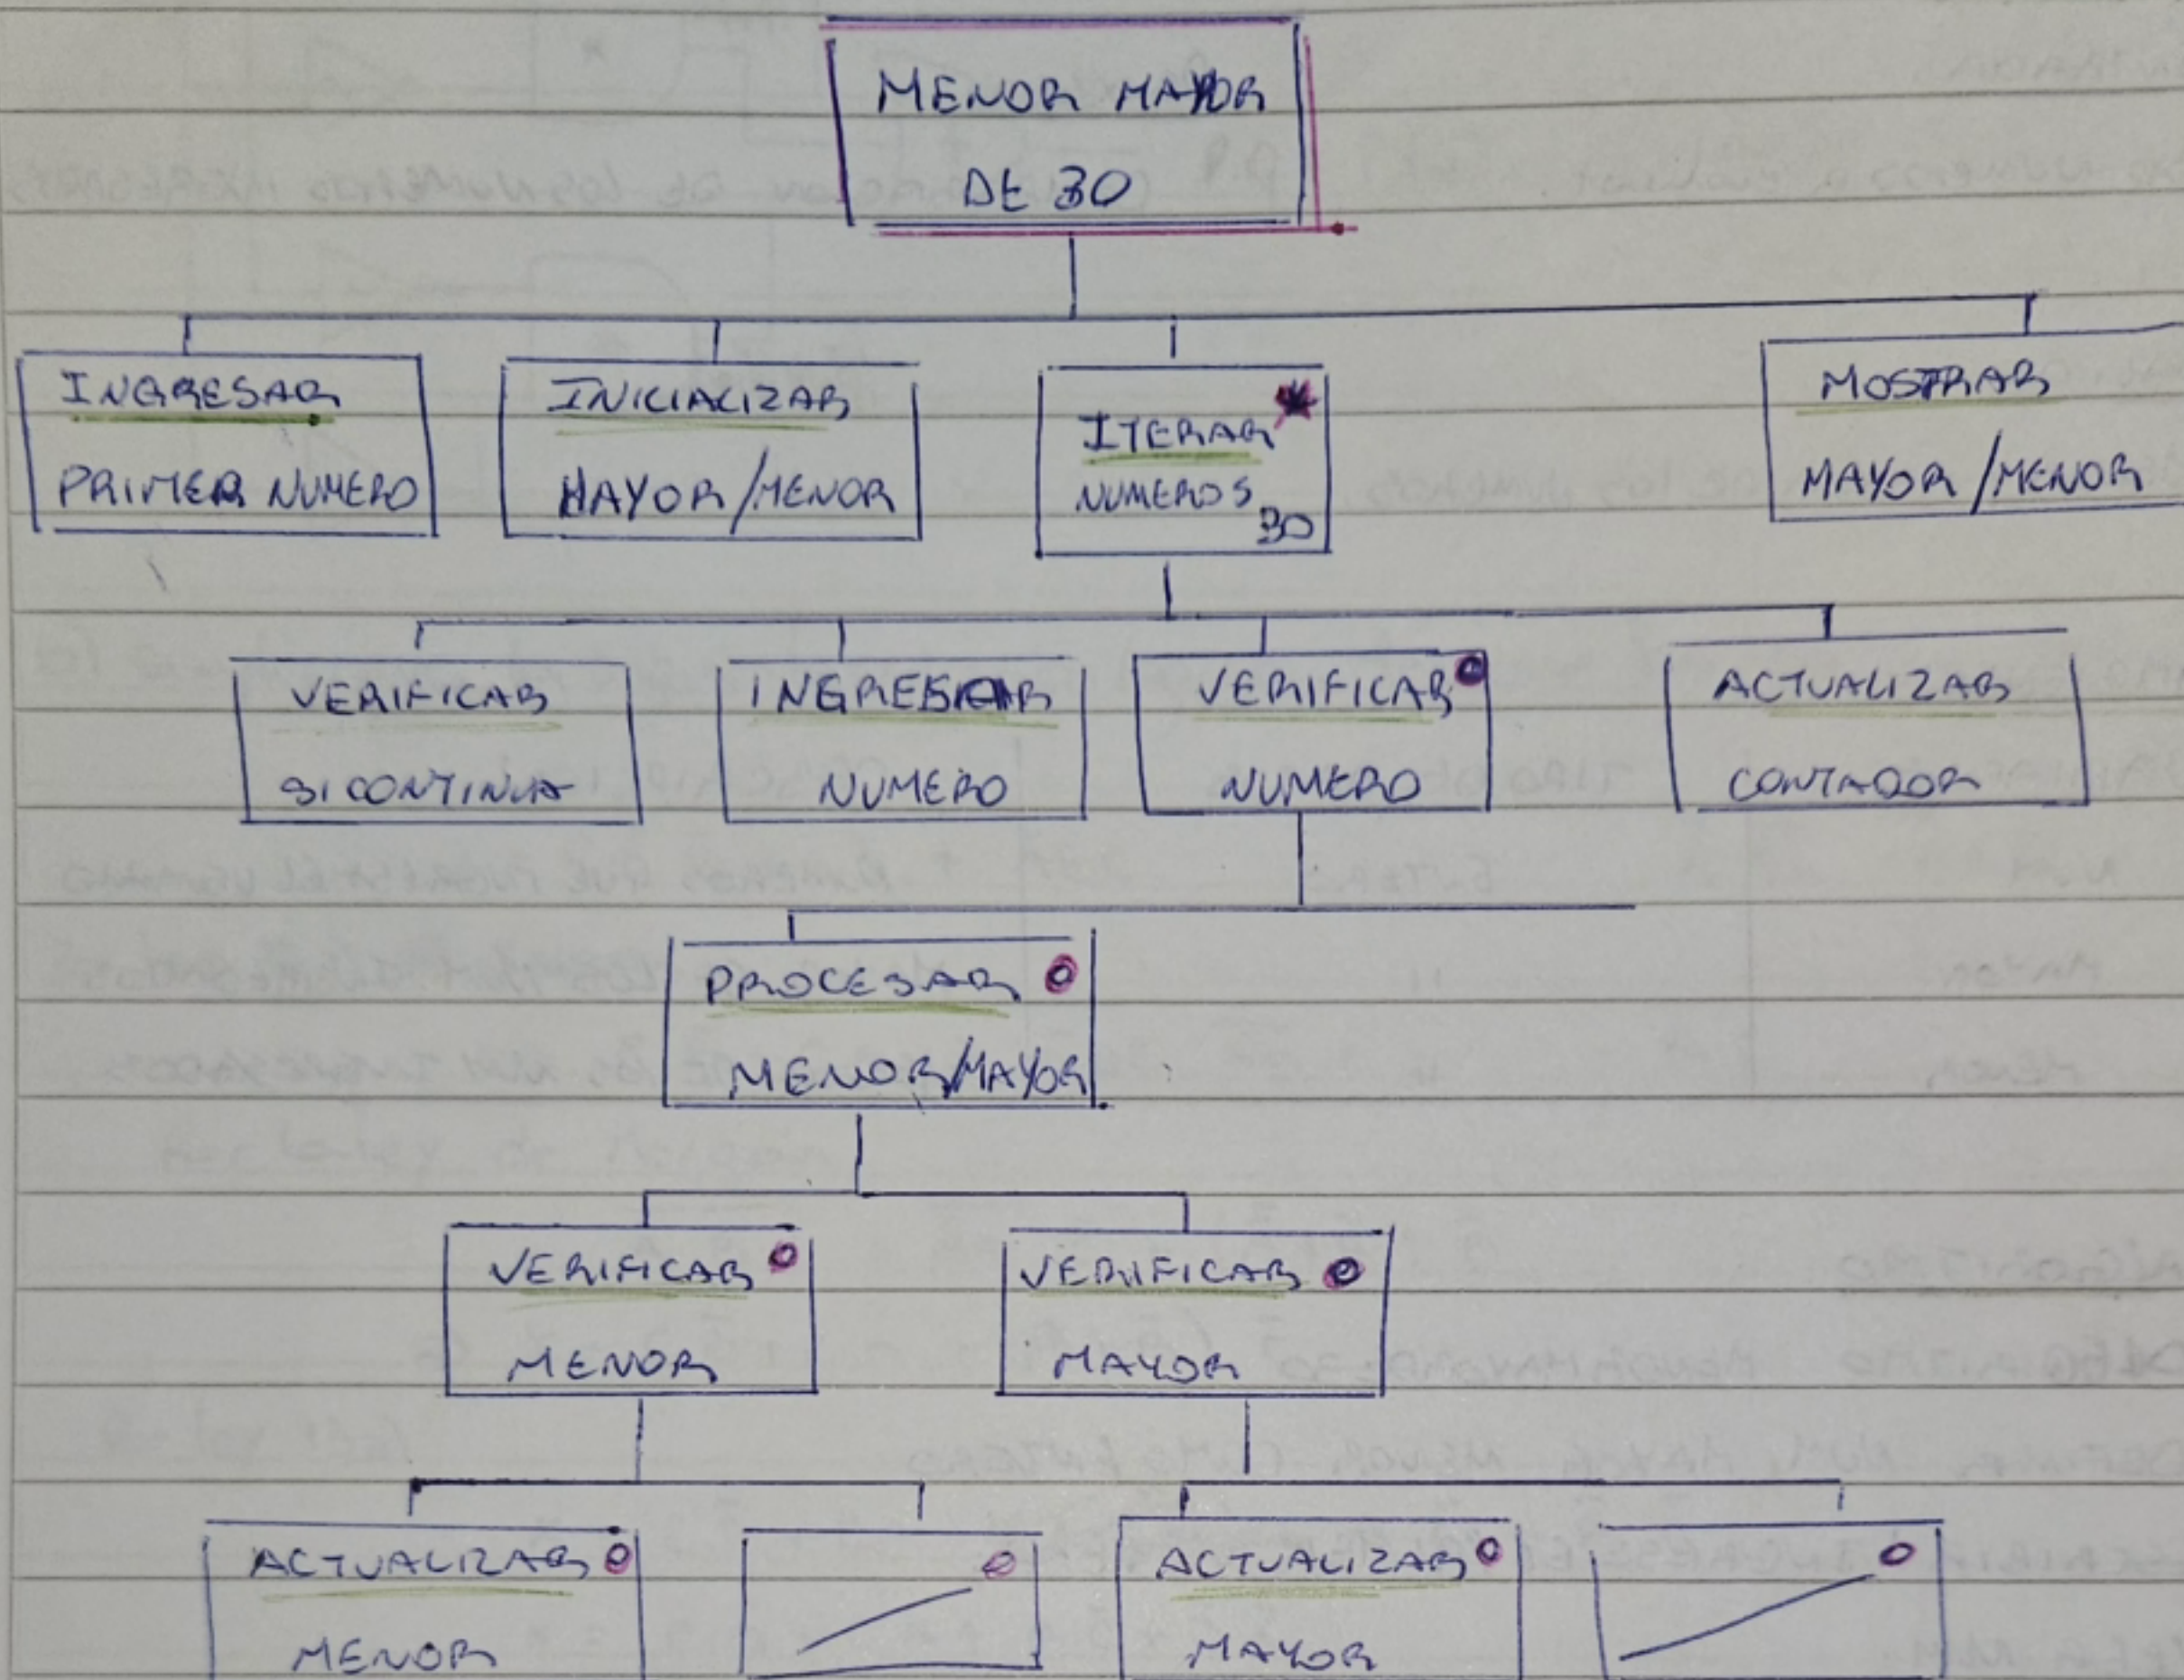 MENOR MAYOR
DE 30
INGRESAR
PRIMER NUMERO
INICIALIZAR
MAYOR/MENOR
ITERAR *
NUMEROS
30
MOSTRAR
MAYOR/MENOR
VERIFICAR
SI CONTINUA
INGRESAR
NUMERO
VERIFICAR
NUMERO
ACTUALIZAR
CONTADOR
PROCESAR
MENOR/MAYOR
VERIFICAR
MENOR
VERIFICAR
MAYOR
ACTUALIZAR
MENOR
ACTUALIZAR
MAYOR